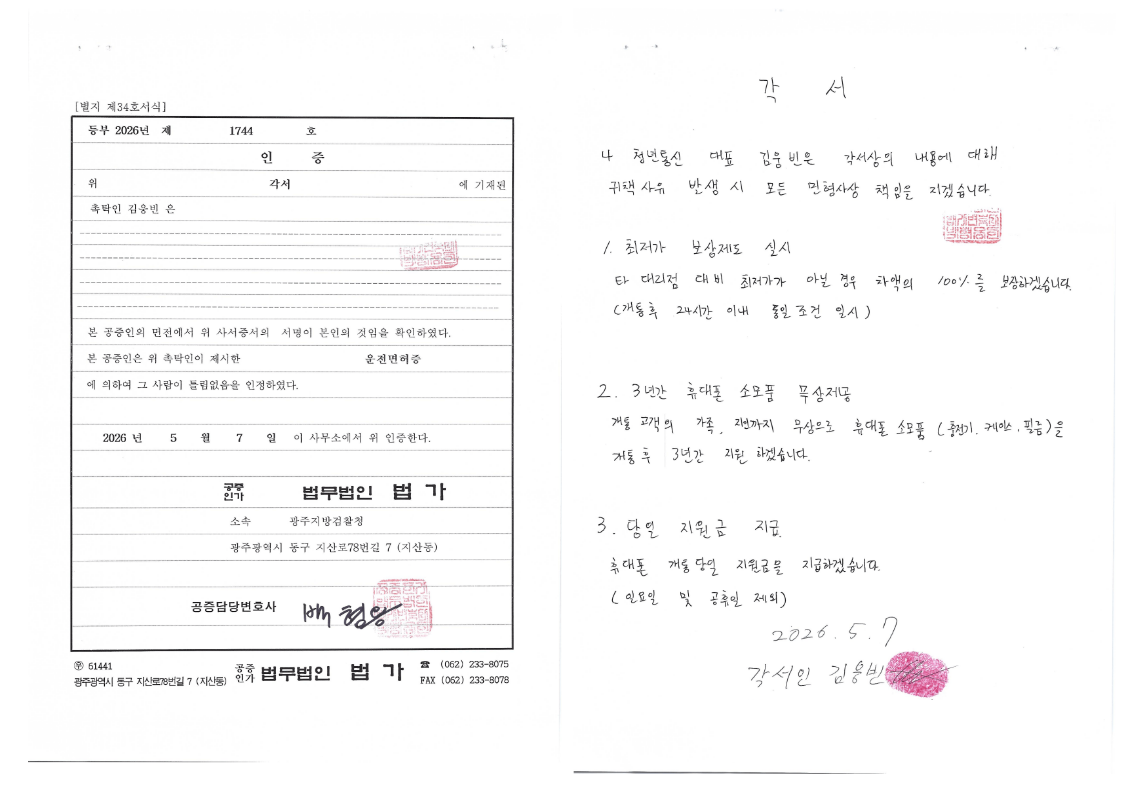 [별지 제34호서식]
등부 2026년 제 1744 호
인 증
위 각서 에 기재된
촉탁인 김웅빈 은
본 공증인의 면전에서 위 사서증서의 서명이 본인의 것임을 확인하였다.
본 공증인은 위 촉탁인이 제시한 운전면허증
에 의하여 그 사람이 틀림없음을 인정하였다.
2026 년 5 월 7 일 이 사무소에서 위 인증한다.
공증인가 법무법인 법 가
소속 광주지방검찰청
광주광역시 동구 지산로78번길 7 (지산동)
공증담당변호사
㉾ 61441
광주광역시 동구 지산로78번길 7 (지산동)
공증인가 법무법인 법 가
☎ (062) 233-8075
FAX (062) 233-8078
각 서
나 청년통신 대표 김웅빈은 각서상의 내용에 대해
귀책사유 발생 시 모든 민형사상 책임을 지겠습니다.
1. 최저가 보상제도 실시
타 대리점 대비 최저가가 아닌 경우 차액의 100%를 보장하겠습니다.
(개통후 24시간 이내 동일조건 일시)
2. 3년간 휴대폰 소모품 무상제공
개통 고객의 가족, 지인까지 무상으로 휴대폰 소모품 (충전기, 케이스, 필름)을
개통 후 3년간 지원 하겠습니다.
3. 당일 지원금 지급
휴대폰 개통당일 지원금을 지급하겠습니다.
(일요일 및 공휴일 제외)
2026. 5. 7
각서인 김웅빈